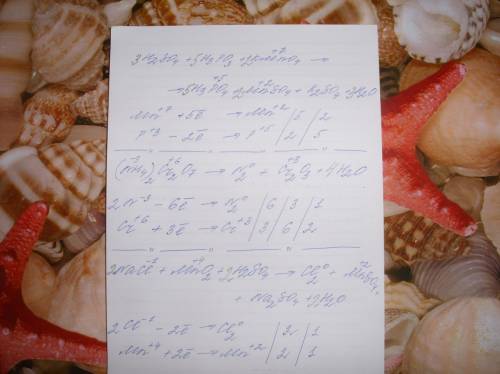 3H₂SO₄ + 5H₃PO₃ + 2KMnO₄⁺⁷ →
→ 5H₃P⁺⁵O₄ + 2Mn⁺²SO₄ + K₂SO₄ + 3H₂O
Mn⁺⁷ + 5ē → Mn⁺² | 5 | 2
P⁺³ − 2ē → P⁺⁵ | 2 | 5
(N⁻³H₄)₂Cr₂⁺⁶O₇ → N₂⁰ + Cr₂⁺³O₃ + 4H₂O
2N⁻³ − 6ē → N₂⁰ | 6 | 3 | 1
Cr⁺⁶ + 3ē → Cr⁺³ | 3 | 6 | 2
2NaCl⁻¹ + Mn⁺⁴O₂ + 2H₂SO₄ → Cl₂⁰ + Mn⁺²SO₄ +
+ Na₂SO₄ + 2H₂O
2Cl⁻¹ − 2ē → Cl₂⁰ | 2 | 1
Mn⁺⁴ + 2ē → Mn⁺² | 2 | 1